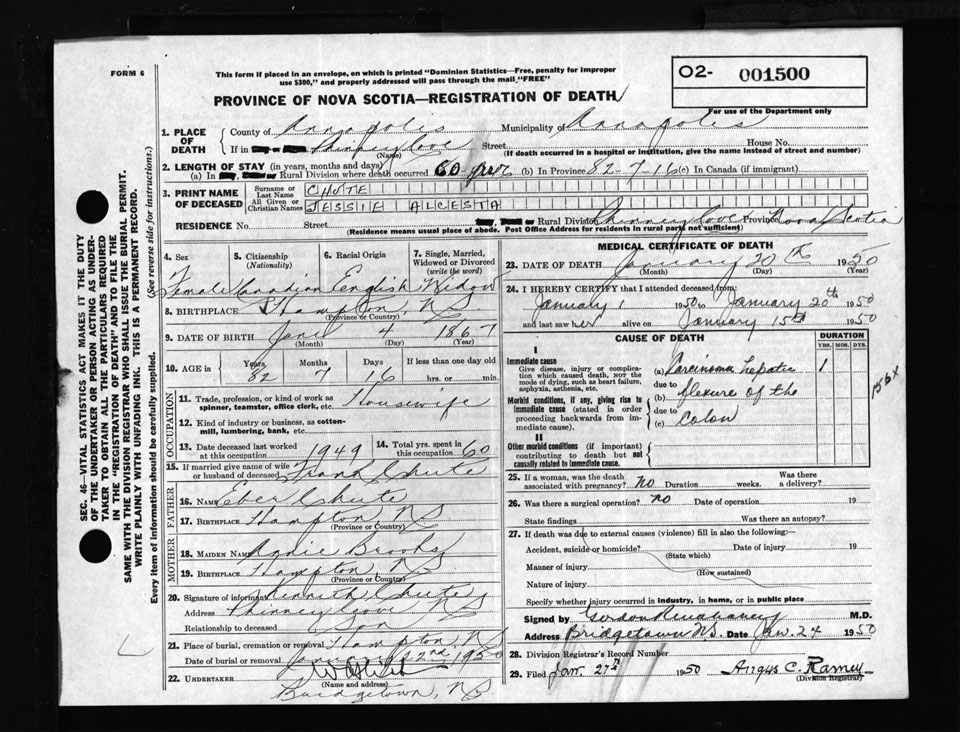 FORM 6
This form if placed in an envelope, on which is printed "Dominion Statistics—Free, penalty for improper
use $300," and properly addressed will pass through the mail "FREE"
O2- 001500
For use of the Department only
PROVINCE OF NOVA SCOTIA—REGISTRATION OF DEATH
1. PLACE OF DEATH
County of Annapolis Municipality of Annapolis
If in Phinney Cove Street House No.
(Name) (If death occurred in a hospital or institution, give the name instead of street and number)
2. LENGTH OF STAY (in years, months and days)
(a) In Rural Division where death occurred 60 yrs (b) In Province 82-7-16 (c) In Canada (if immigrant)
3. PRINT NAME OF DECEASED
Surname or Last Name CHUTE
All Given or Christian Names JESSIE ALCESTA
RESIDENCE No. Street or Rural Division Phinney Cove Province Nova Scotia
(Residence means usual place of abode. Post Office Address for residents in rural parts not sufficient)
4. Sex
Female
5. Citizenship
(Nationality)
Canadian
6. Racial Origin
English
7. Single, Married,
Widowed or Divorced
(write the word)
Widow
8. BIRTHPLACE Hampton, NS
(Province or Country)
9. DATE OF BIRTH 4 1867
(Month) (Day) (Year)
10. AGE in Years Months Days If less than one day old
82 7 16 hrs. or min.
OCCUPATION
11. Trade, profession, or kind of work as
spinner, teamster, office clerk, etc. Housewife
12. Kind of industry or business, as cotton-
mill, lumbering, bank, etc.
13. Date deceased last worked
at this occupation 1949
14. Total yrs. spent in
this occupation 60
15. If married give name of wife
or husband of deceased Frank Chute
FATHER
16. Name Eber Chute
17. Birthplace Hampton NS
(Province or Country)
MOTHER
18. Maiden Name Brooks
19. Birthplace Hampton, NS
(Province or Country)
20. Signature of informant Kenneth Chute
Address Phinney Cove NS
Relationship to deceased Son
21. Place of burial, cremation or removal Hampton, NS
Date of burial or removal 22nd 1950
22. UNDERTAKER
(Name and address)
Bridgetown, NS
MEDICAL CERTIFICATE OF DEATH
23. DATE OF DEATH January 20th 1950
(Month) (Day) (Year)
24. I HEREBY CERTIFY that I attended deceased from
January 1 1950 to January 20th 1950
and last saw her alive on January 15th 1950
CAUSE OF DEATH
DURATION
YRS. MOS. DYS.
I
Immediate cause
Give disease, injury or complica-
tion which caused death, not the
mode of dying, such as heart failure,
asphyxia, asthenia, etc.
(a) Carcinoma hepatic 1
due to
Morbid conditions, if any, giving rise to
immediate cause (stated in order
proceeding backwards from im-
mediate cause).
(b) flexure of the
due to
(c) Colon
II
Other morbid conditions (if important)
contributing to death but not
causally related to immediate cause.
25. If a woman, was the death
associated with pregnancy? NO Duration weeks. Was there
a delivery?
26. Was there a surgical operation? NO Date of operation 19
State findings Was there an autopsy?
27. If death was due to external causes (violence) fill in also the following:—
Accident, suicide or homicide? Date of injury 19
(State which)
Manner of injury
(How sustained)
Nature of injury
Specify whether injury occurred in industry, in home, or in public place
Signed by Gordon M.D.
Address Bridgetown N.S. Date Jan. 24 1950
28. Division Registrar's Record Number
29. Filed Jan. 27th 1950 Angus C. Ramey
(Division Registrar)
SEC. 46—VITAL STATISTICS ACT MAKES IT THE DUTY
OF THE UNDERTAKER OR PERSON ACTING AS UNDER-
TAKER TO OBTAIN ALL THE PARTICULARS REQUIRED
IN THE "REGISTRATION OF DEATH" AND TO FILE THE
SAME WITH THE DIVISION REGISTRAR WHO SHALL ISSUE THE BURIAL PERMIT.
WRITE PLAINLY WITH UNFADING INK. THIS IS A PERMANENT RECORD.
Every item of information should be carefully supplied. (See reverse side for instructions.)